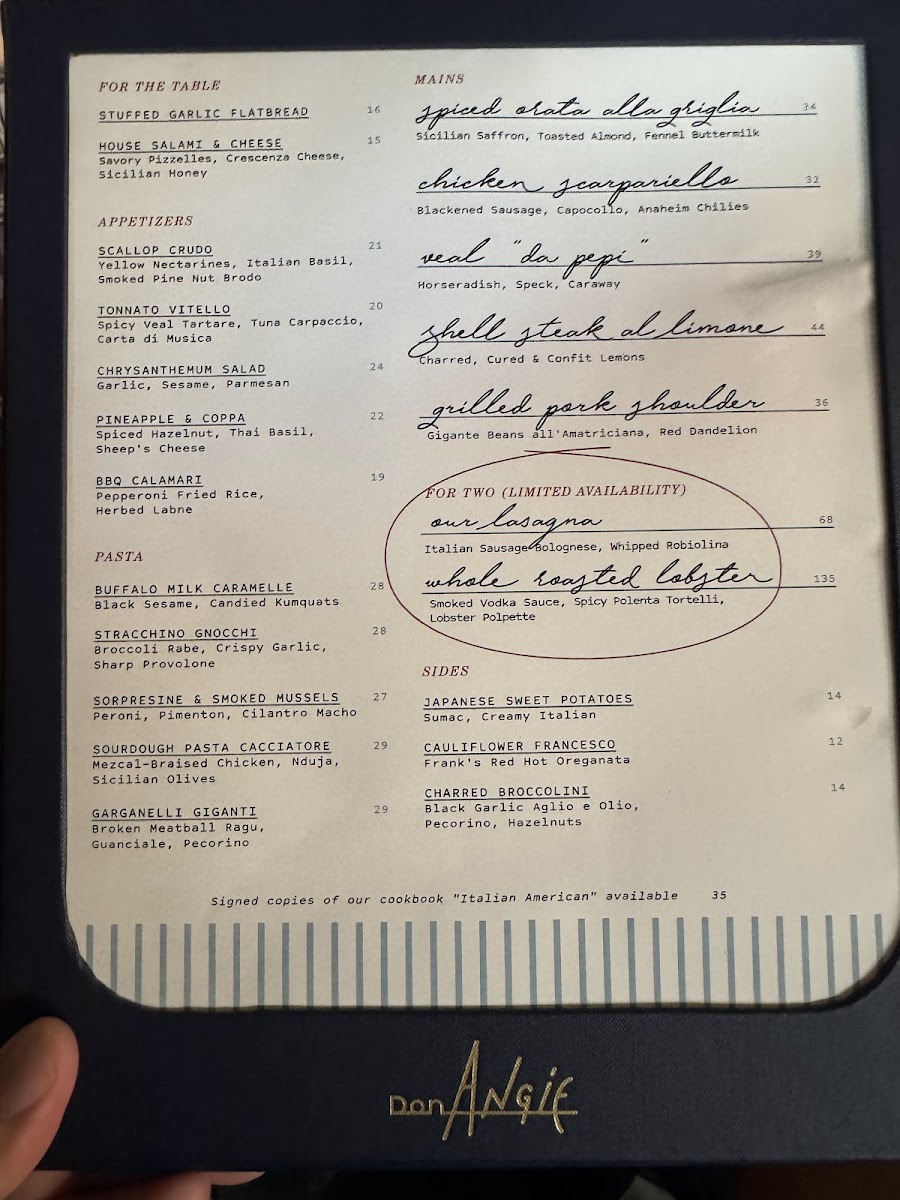 FOR THE TABLE
STUFFED GARLIC FLATBREAD 16
HOUSE SALAMI & CHEESE 15
Savory Pizzelles, Crescenza Cheese,
Sicilian Honey
APPETIZERS
SCALLOP CRUDO 21
Yellow Nectarines, Italian Basil,
Smoked Pine Nut Brodo
TONNATO VITELLO 20
Spicy Veal Tartare, Tuna Carpaccio,
Carta di Musica
CHRYSANTHEMUM SALAD 24
Garlic, Sesame, Parmesan
PINEAPPLE & COPPA 22
Spiced Hazelnut, Thai Basil,
Sheep's Cheese
BBQ CALAMARI 19
Pepperoni Fried Rice,
Herbed Labne
PASTA
BUFFALO MILK CARAMELLE 28
Black Sesame, Candied Kumquats
STRACCHINO GNOCCHI 28
Broccoli Rabe, Crispy Garlic,
Sharp Provolone
SORPRESINE & SMOKED MUSSELS 27
Peroni, Pimenton, Cilantro Macho
SOURDOUGH PASTA CACCIATORE 29
Mezcal-Braised Chicken, Nduja,
Sicilian Olives
GARGANELLI GIGANTI 29
Broken Meatball Ragu,
Guanciale, Pecorino
MAINS
spiced orata alla griglia 34
Sicilian Saffron, Toasted Almond, Fennel Buttermilk
chicken scarpariello 32
Blackened Sausage, Capocollo, Anaheim Chilies
veal "da pepi" 39
Horseradish, Speck, Caraway
shell steak al limone 44
Charred, Cured & Confit Lemons
grilled pork shoulder 36
Gigante Beans all'Amatriciana, Red Dandelion
FOR TWO (LIMITED AVAILABILITY)
our lasagna 68
Italian Sausage Bolognese, Whipped Robiolina
whole roasted lobster 135
Smoked Vodka Sauce, Spicy Polenta Tortelli,
Lobster Polpette
SIDES
JAPANESE SWEET POTATOES 14
Sumac, Creamy Italian
CAULIFLOWER FRANCESCO 12
Frank's Red Hot Oreganata
CHARRED BROCCOLINI 14
Black Garlic Aglio e Olio,
Pecorino, Hazelnuts
Signed copies of our cookbook "Italian American" available 35
Don ANGIE